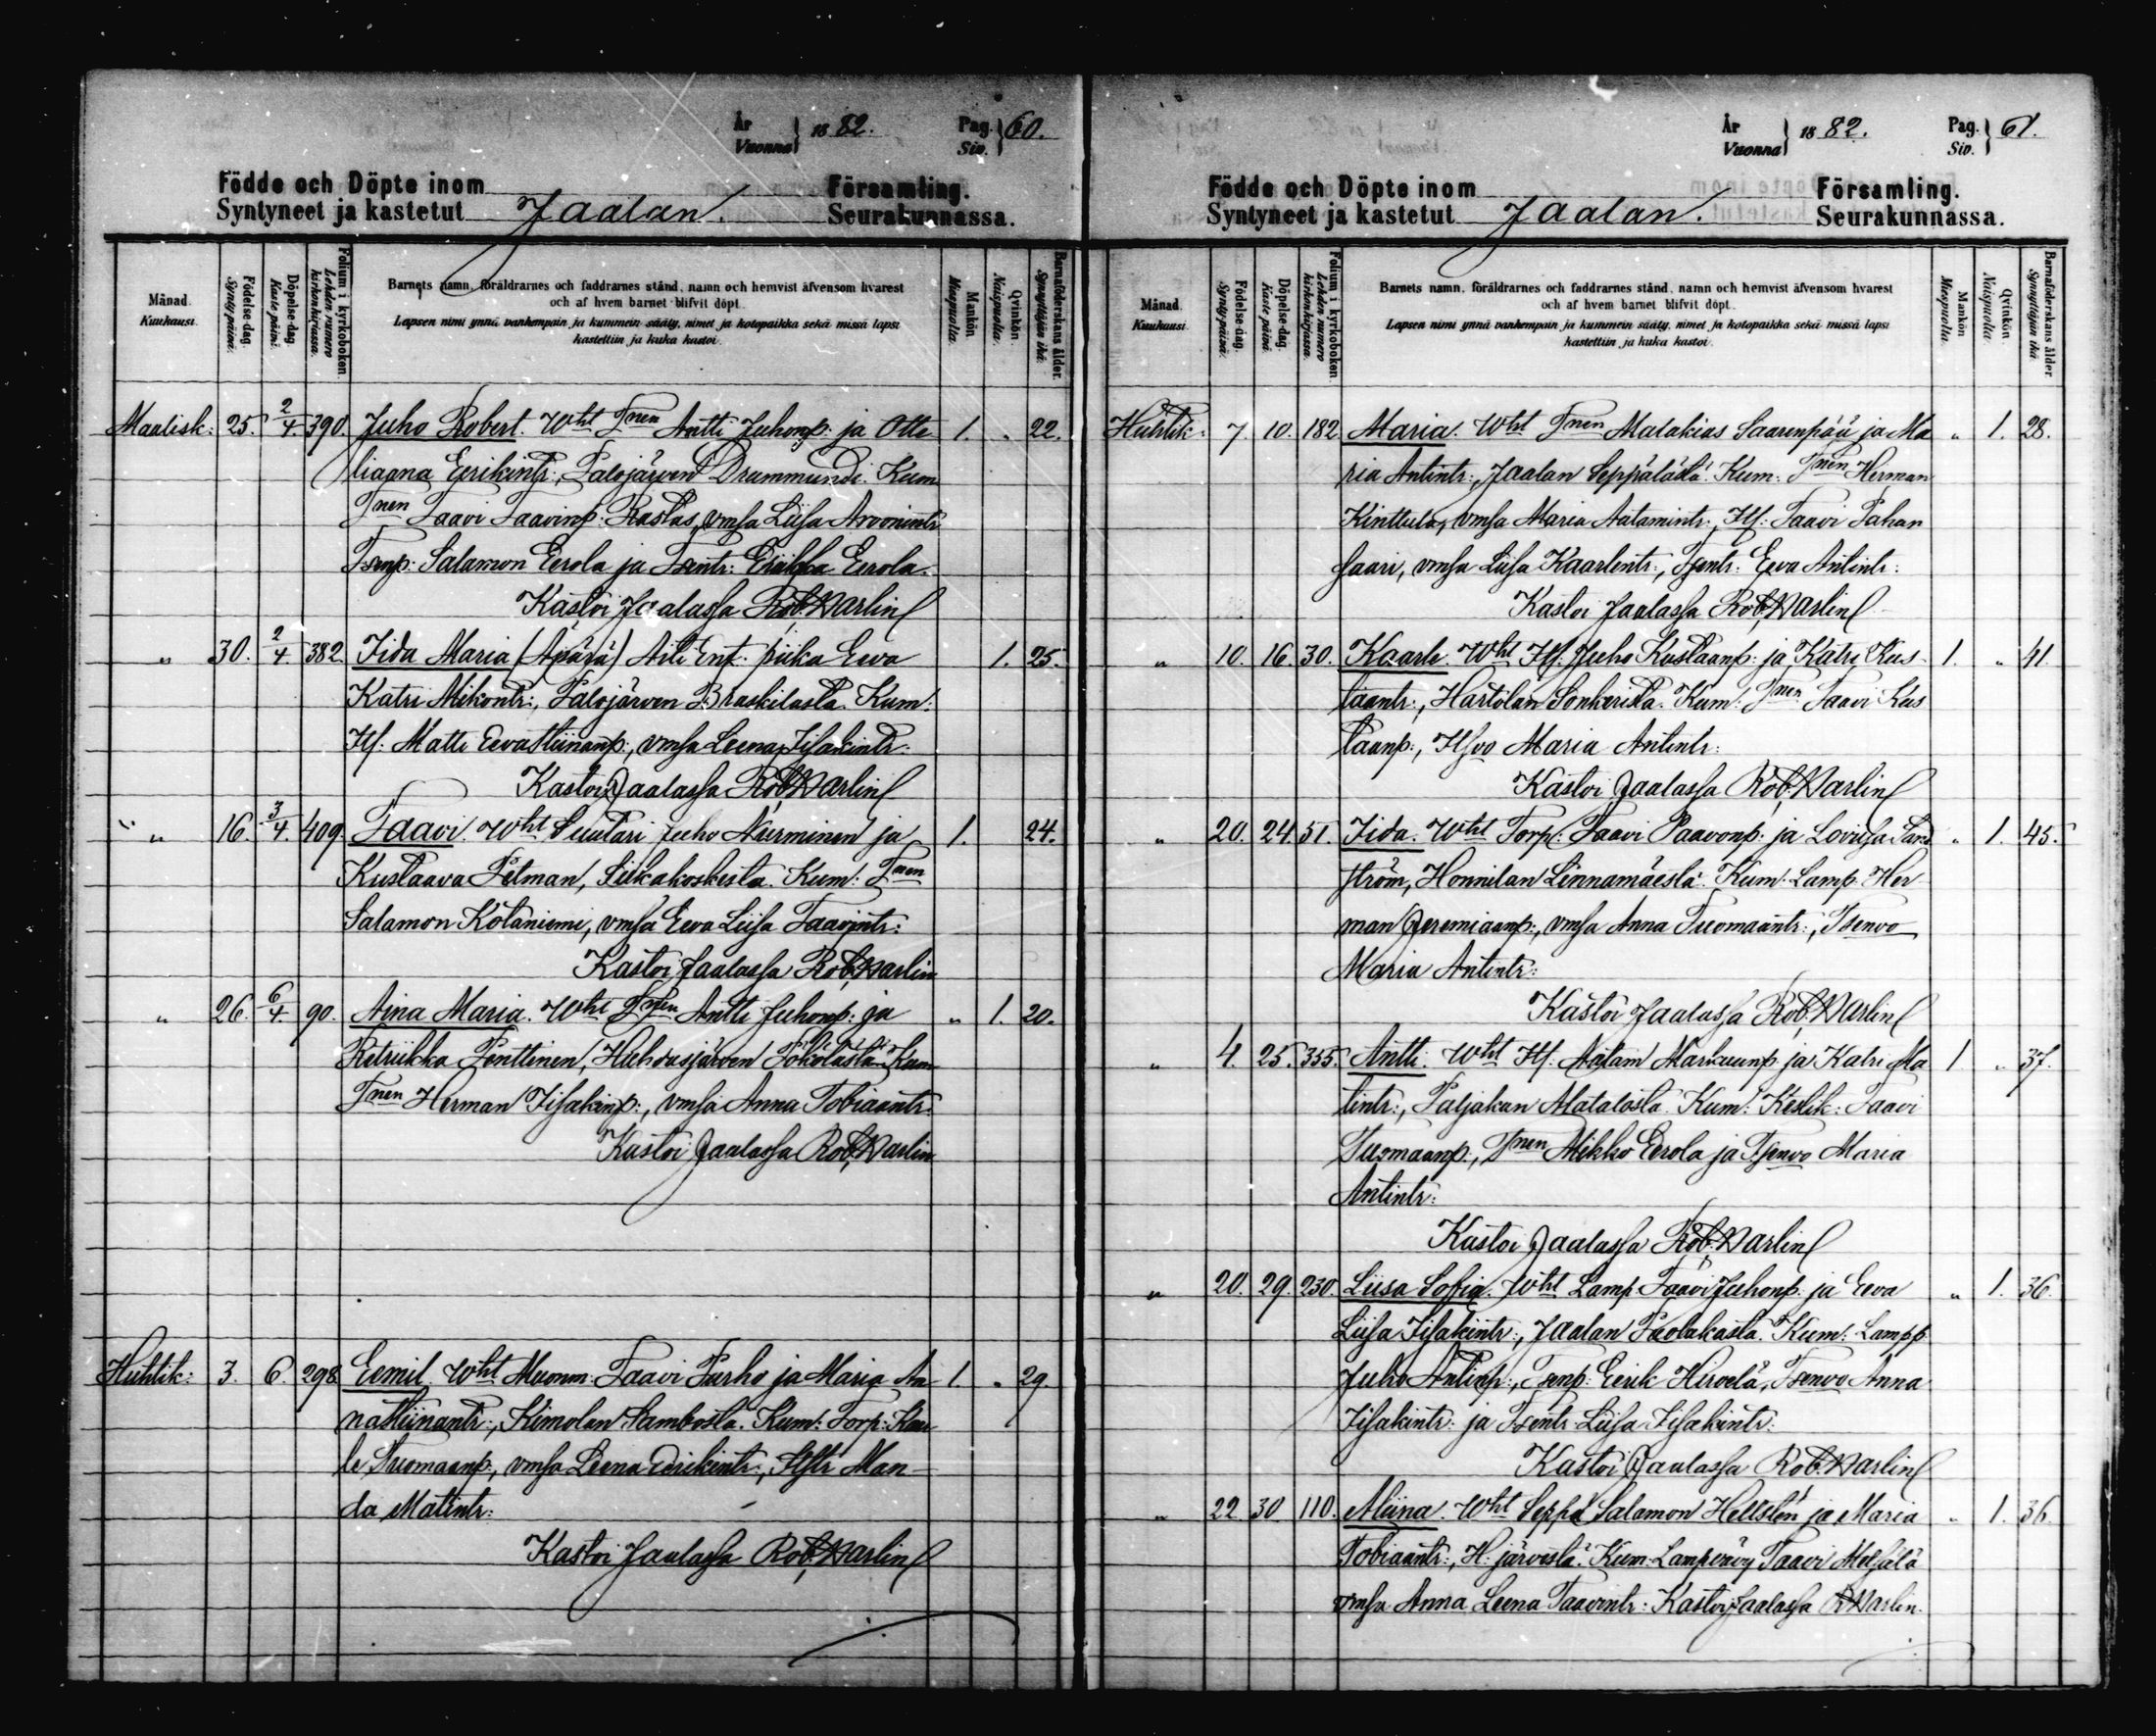 År
Vuonna } 1882. Pag. Siv. } 60.
Födde och Döpte inom Församling.
Syntyneet ja kastetut Jaalan. Seurakunnassa.
Månad. Kuukausi.
Födelse-dag. Synty-päivä.
Döpelse-dag. Kaste-päivä.
Folium i kyrkoboken. Lehden numero kirkonkirjassa.
Barnets namn, föräldrarnes och faddrarnes stånd, namn och hemvist äfvensom hvarest
och af hvem barnet blifvit döpt.
Lapsen nimi ynnä vanhempain ja kummein sääty, nimet ja kotopaikka sekä missä lapsi
kastettiin ja kuka kastoi.
Mankön. Miespuolia.
Qvinkön. Naispuolia.
Barnaföderskans ålder. Synnyttäjän ikä.
Maalisk: 25. 2/4 390. Juho Robert. Wht Tnen Antti Juhonp: ja Otte 1. " 22.
liaana Eerikintr:, Palojärven Drummundi. Kum
Tnen Taavi Taavinp: Rastas, vmsa Liisa Aroonintr
Tsenp: Salamon Eerola ja Tsentr: Eriikka Eerola.
Kastoi Jaalassa Rob. Warlin
" 30. 2/4. 382. Iida Maria (Äpärä) Äiti Ent. piika Ewa 1. 25.
Katri Mikontr:, Palojärven Braskilasta. Kum:
Itsl: Matti Eevastiinanp:, vmsa Leena Iisakintr:
Kastoi Jaalassa Rob. Warlin
" 16. 3/4. 409. Taavi. Wht Suutari Juho Nurminen ja 1. 24.
Kustaava Pitman, Siikakoskesta. Kum: Tnen
Salamon Kotaniemi, vmsa Eeva Liisa Taavintr:
Kastoi Jaalassa Rob. Warlin
" 26. 6/4. 90. Aina Maria. Wht Tnen Antti Juhonp: ja " 1. 20.
Retriikka Penttinen, Huhdasjärven Pökölästä. Kum
Tnen Herman Iisakinp:, vmsa Anna Tobiaantr:
Kastoi Jaalassa Rob. Warlin
Huhtik: 3. 6. 298. Eemil. Wht Muonm: Taavi Purho ja Maria An 1. " 29.
nastiinantr:, Kimolan Sambosta. Kum: Torp: Kaar
le Tuomaanp:, vmsa Leena Eerikintr:, Itstr Man-
da Matintr:
Kastoi Jaalassa Rob. Warlin
År
Vuonna } 1882. Pag. Siv. } 61.
Födde och Döpte inom Församling.
Syntyneet ja kastetut Jaalan. Seurakunnassa.
Månad. Kuukausi.
Födelse-dag. Synty-päivä.
Döpelse-dag. Kaste-päivä.
Folium i kyrkoboken. Lehden numero kirkonkirjassa.
Barnets namn, föräldrarnes och faddrarnes stånd, namn och hemvist äfvensom hvarest
och af hvem barnet blifvit döpt.
Lapsen nimi ynnä vanhempain ja kummein sääty, nimet ja kotopaikka sekä missä lapsi
kastettiin ja kuka kastoi.
Mankön. Miespuolia.
Qvinkön. Naispuolia.
Barnaföderskans ålder. Synnyttäjän ikä.
Huhtik: 7. 10. 182. Maria. Wht Tnen Malakias Saarenpää ja Ma " 1. 28.
ria Antintr:, Jaalan Seppälästä. Kum: Tnen Herman
Kinttula, vmsa Maria Aatamintr:, Itsl: Taavi Pahan
saari, vmsa Liisa Kaarlentr:, Tsentr: Eeva Antintr:
Kastoi Jaalassa Rob. Warlin
" 10. 16. 30. Kaarle. Wht Itsl: Juho Kustaanp: ja Katri Kus- 1. " 41.
taantr:, Hartolan Sonkerista. Kum: Tnen Taavi Kus
taanp:, Itsvo Maria Antintr:
Kastoi Jaalassa Rob. Warlin
" 20. 24. 51. Iida. Wht Torp: Taavi Paavonp: ja Lovisa Sand " 1. 45.
ström, Honnilan Linnamäestä. Kum: Lamp. Her-
man Jeremiaanp:, vmsa Anna Tuomaantr:, Tsenvo
Maria Antintr:
Kastoi Jaalassa Rob. Warlin
" 4. 25. 355. Antti. Wht Itsl: Aatam Markuunp: ja Katri Ma 1 " 37.
tintr:, Paljakan Matalasta. Kum: Kestik: Taavi
Tuomaanp:, Tnen Mikko Eerola ja Tsenvo Maria
Antintr:
Kastoi Jaalassa Rob. Warlin
" 20. 29. 230. Liisa Sofia. Wht Lamp. Taavi Juhonp: ja Eeva " 1. 36.
Liisa Iisakintr:, Jaalan Paolakasta. Kum: Lampp
Juho Antinp:, Tsenp: Eerik Hirvelä, Tsenvo Anna
Iisakintr: ja Tsentr Liisa Iisakintr:
Kastoi Jaalassa Rob. Warlin
" 22. 30. 110. Miina. Wht Seppä Salamon Hellstén ja Maria " 1. 36.
Tobiaantr:, H:järvestä. Kum: Lampvävy Taavi Metsälä
vmsa Anna Leena Taavintr: Kastoi Jaalassa R Warlin.